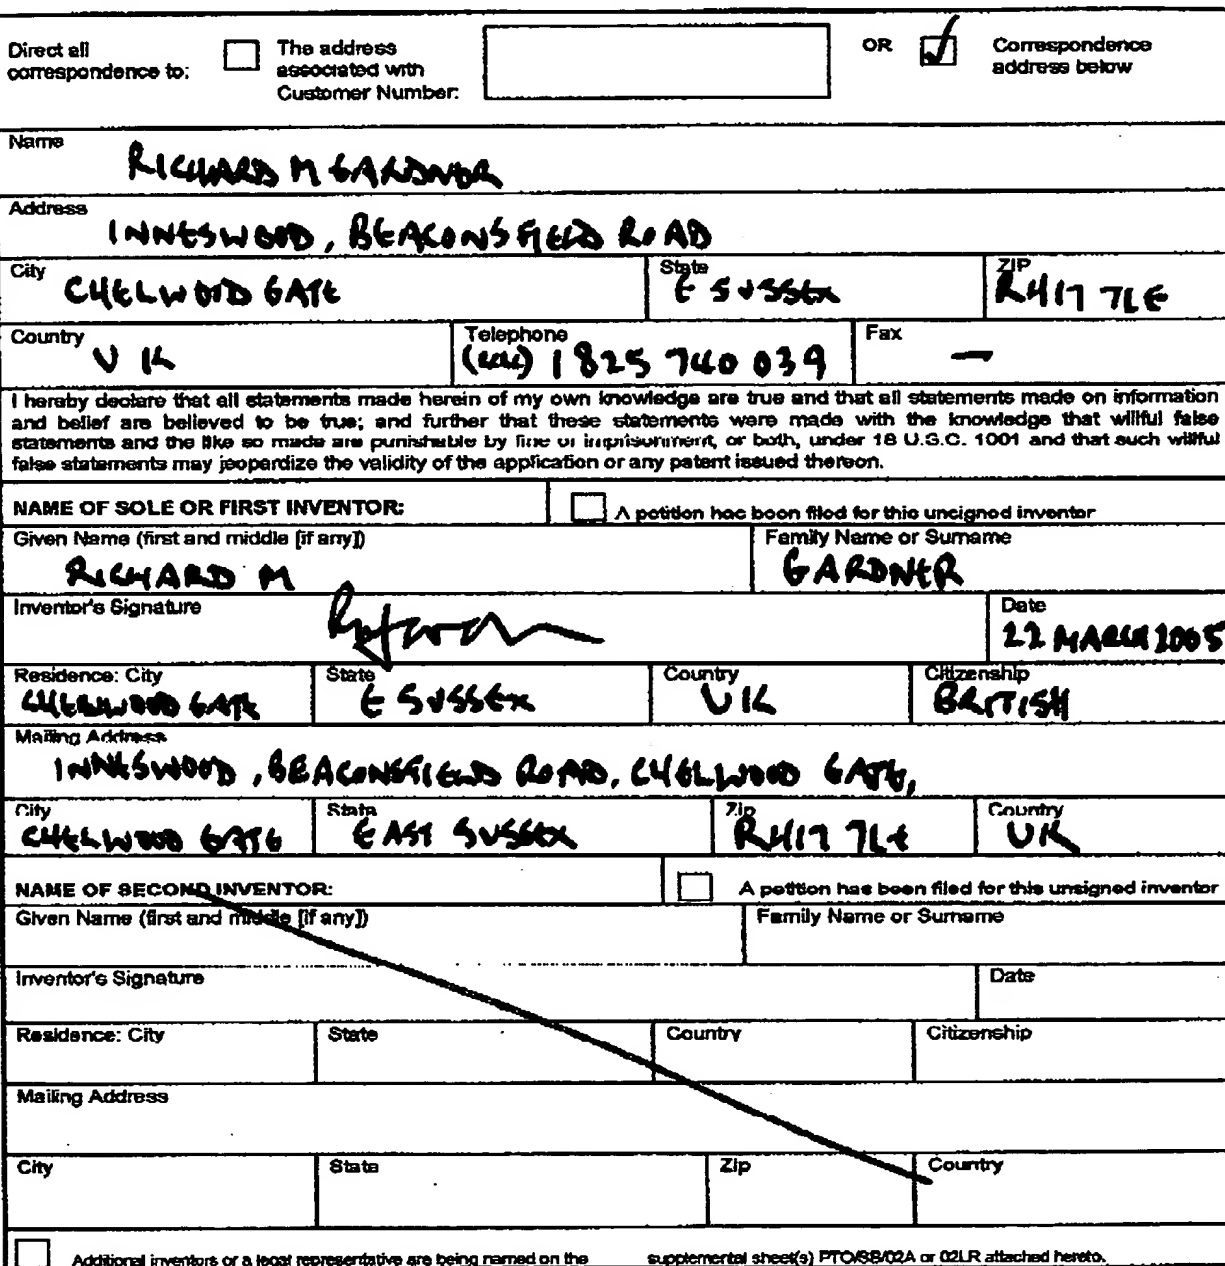 Direct all correspondence to: The address associated with Customer Number: OR Correspondence address below
Name
RICHARD M GARDNER
Address
INNESWOOD, BEACONSFIELD ROAD
City CHELWOOD GATE State E SUSSEX ZIP RH17 7LE
Country UK Telephone (44) 1825 740 039 Fax —
I hereby declare that all statements made herein of my own knowledge are true and that all statements made on information
and belief are believed to be true; and further that these statements were made with the knowledge that willful false
statements and the like so made are punishable by fine or imprisonment, or both, under 18 U.S.C. 1001 and that such willful
false statements may jeopardize the validity of the application or any patent issued thereon.
NAME OF SOLE OR FIRST INVENTOR: A petition has been filed for this unsigned inventor
Given Name (first and middle [if any]) Family Name or Surname
RICHARD M GARDNER
Inventor's Signature Date
22 MARCH 2005
Residence: City State Country Citizenship
CHELWOOD GATE E SUSSEX UK BRITISH
Mailing Address
INNESWOOD, BEACONSFIELD ROAD, CHELWOOD GATE,
City State Zip Country
CHELWOOD GATE EAST SUSSEX RH17 7LE UK
NAME OF SECOND INVENTOR: A petition has been filed for this unsigned inventor
Given Name (first and middle [if any]) Family Name or Surname
Inventor's Signature Date
Residence: City State Country Citizenship
Mailing Address
City State Zip Country
Additional inventors or a legal representative are being named on the supplemental sheet(s) PTO/SB/02A or 02LR attached hereto.